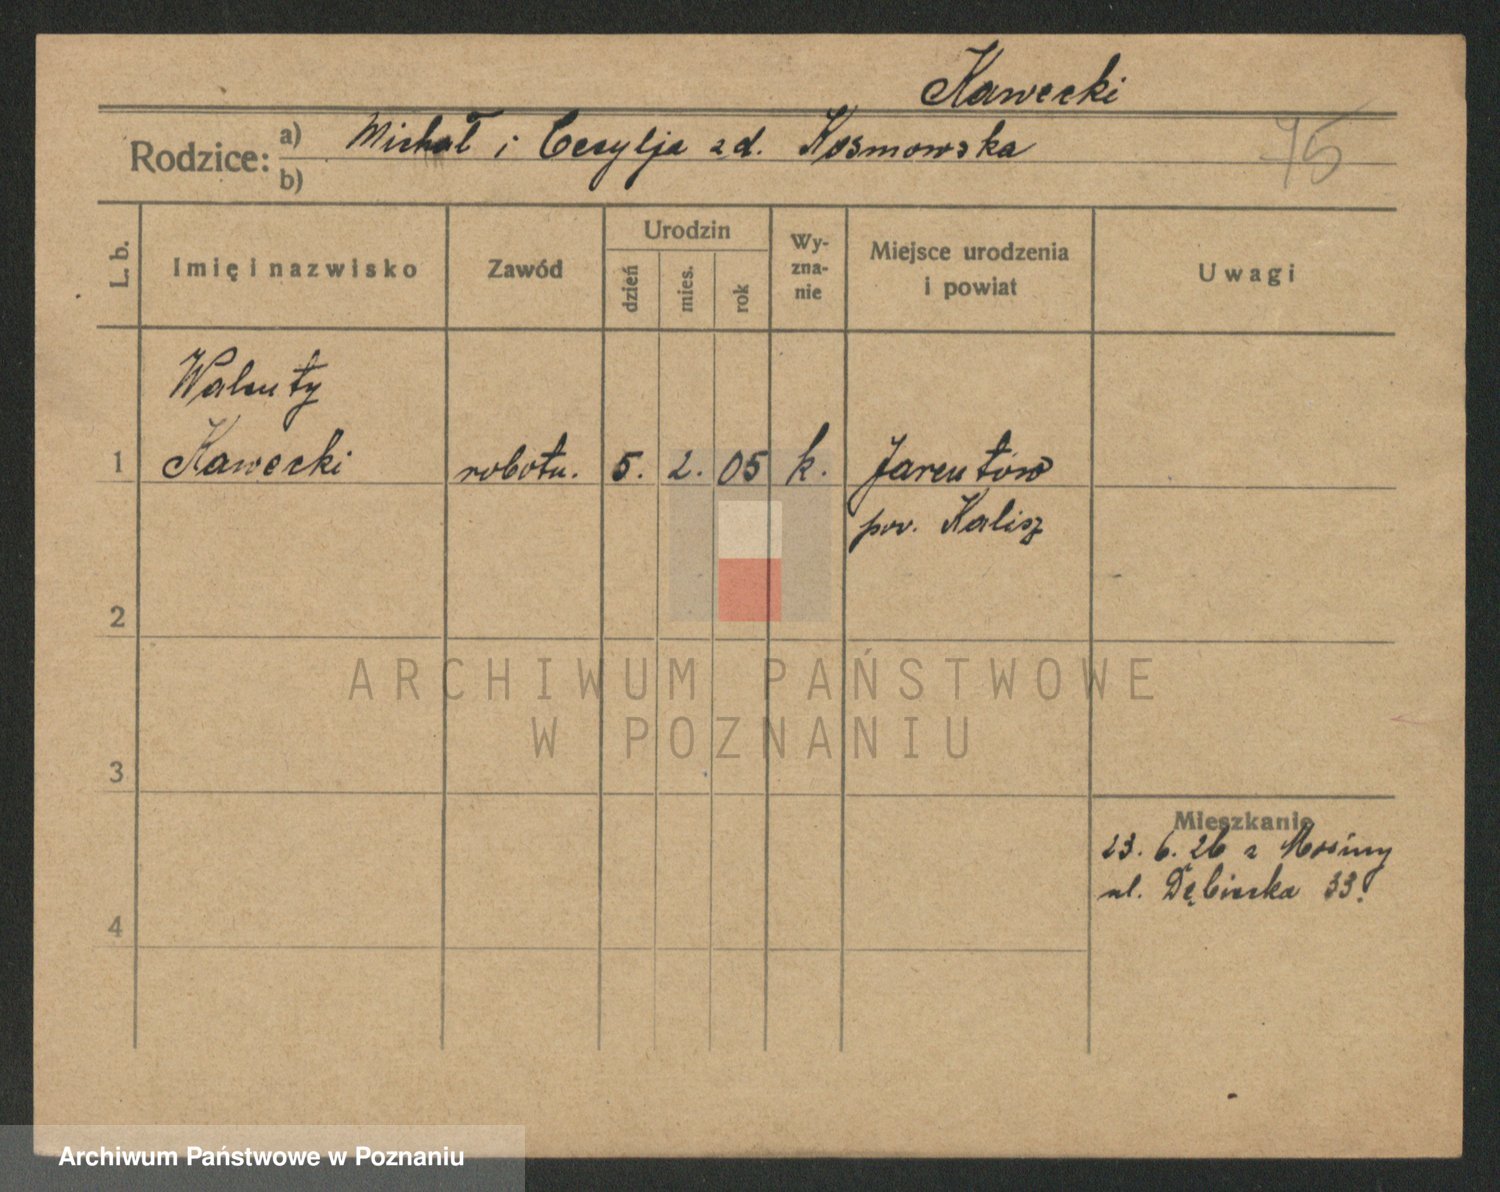 Kawecki
Rodzice: a) Michał i Cecylja zd. Kosmowska
b)
75
L. b.
Imię i nazwisko
Zawód
Urodzin
dzień
mies.
rok
Wy-
zna-
nie
Miejsce urodzenia
i powiat
Uwagi
Walenty
1 Kawecki robotn. 5. 2. 05 k. Jarentów
pow. Kalisz
2
3
4
Mieszkanie
23. 6. 26 z Mosiny
ul. Dębiecka 33.
ARCHIWUM PAŃSTWOWE
W POZNANIU
Archiwum Państwowe w Poznaniu